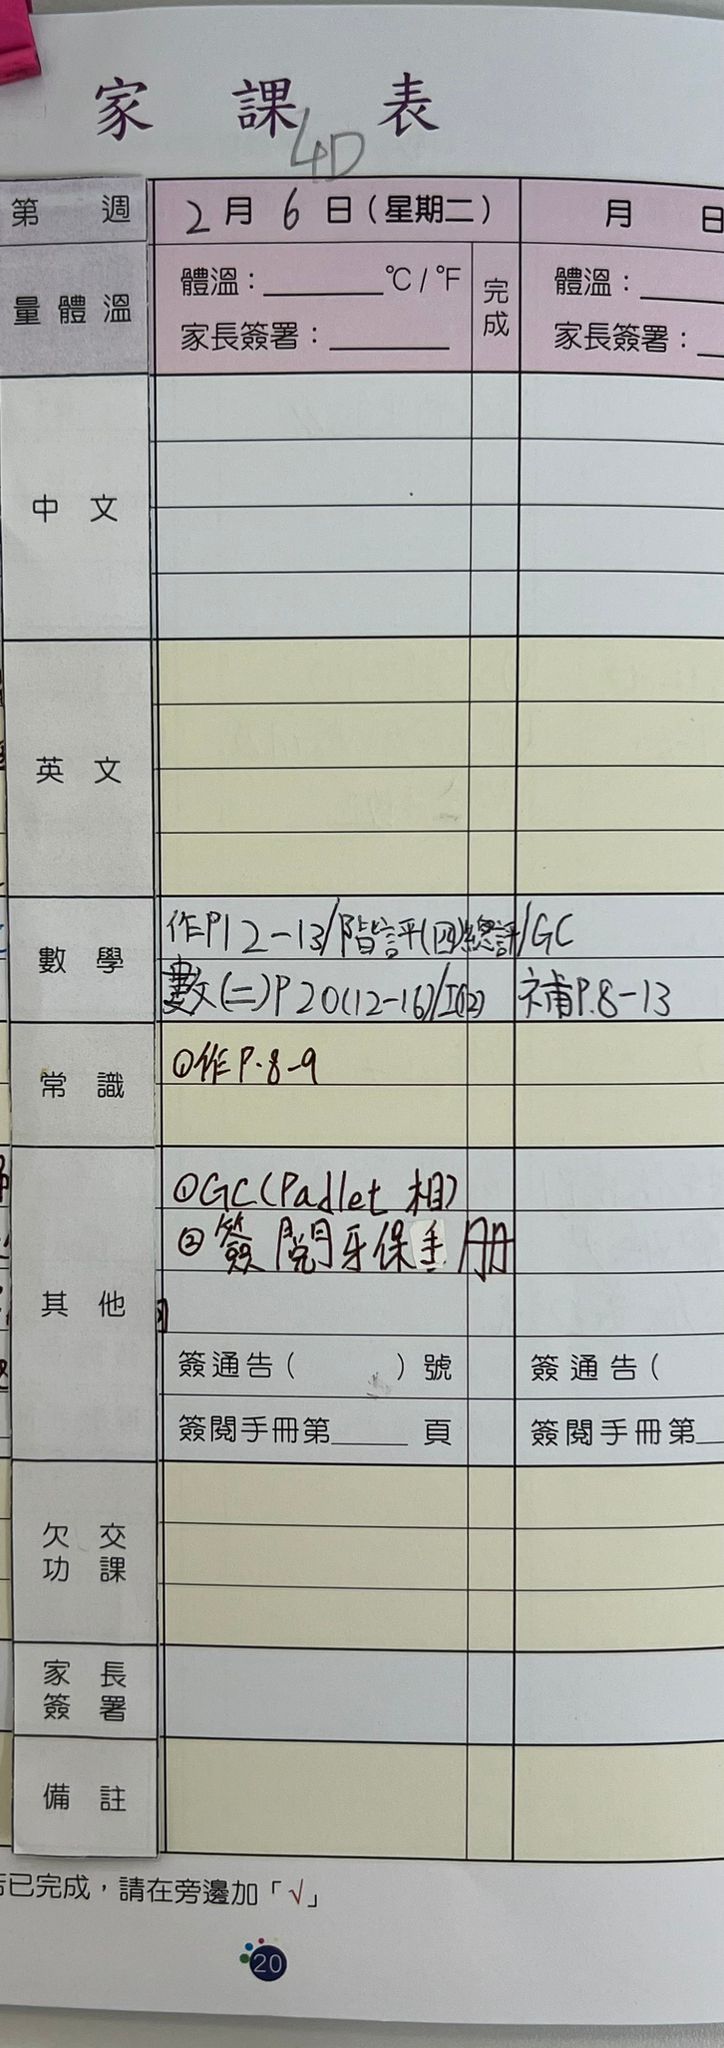 家課表
4D
第 週 2月6日(星期二) 月 日
量體溫 體溫：______°C/°F 完成 體溫：
家長簽署：______ 家長簽署：
中文
英文
數學 作P12-13/階評(四)總評/GC
數(二)P20(12-16)/ 補P.8-13
常識 ①作P.8-9
其他 ①GC(Padlet 相)
②簽閱牙保手冊
簽通告( )號 簽通告(
簽閱手冊第____頁 簽閱手冊第
欠交功課
家長簽署
備註
已完成，請在旁邊加「√」
20